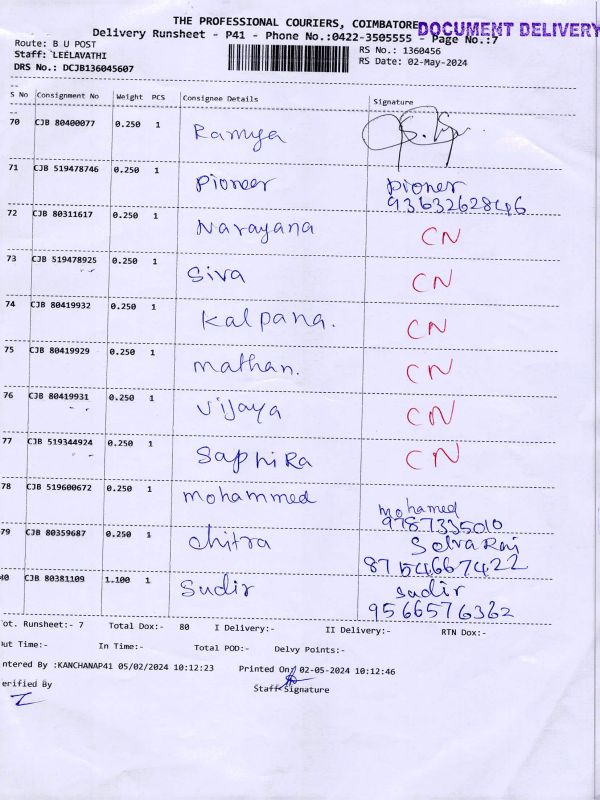 THE PROFESSIONAL COURIERS, COIMBATORE
DOCUMENT DELIVERY
Delivery Runsheet - P41 - Phone No.:0422-3505555 - Page No.:7
Route: B U POST
Staff: LEELAVATHI
DRS No.: DCJB136045607
RS No.: 1360456
RS Date: 02-May-2024
S No Consignment No Weight PCS Consignee Details Signature
70 CJB 80400077 0.250 1 Ramya
71 CJB 519478746 0.250 1 Pioneer Pioner
9363262846
72 CJB 80311617 0.250 1 Narayana CN
73 CJB 519478925 0.250 1 Siva CN
74 CJB 80419932 0.250 1 Kalpana. CN
75 CJB 80419929 0.250 1 Mathan. CN
76 CJB 80419931 0.250 1 Vijaya CN
77 CJB 519344924 0.250 1 Saphira CN
78 CJB 519600672 0.250 1 Mohammed Mohamed
9787335010
79 CJB 80359687 0.250 1 Chitra Selva Raj
87154667422
CJB 80381109 1.100 1 Sudir Sudir
9566576362
ot. Runsheet:- 7 Total Dox:- 80 I Delivery:- II Delivery:- RTN Dox:-
ut Time:- In Time:- Total POD:- Delvy Points:-
ntered By :KANCHANAP41 05/02/2024 10:12:23 Printed On: 02-05-2024 10:12:46
erified By Staff Signature